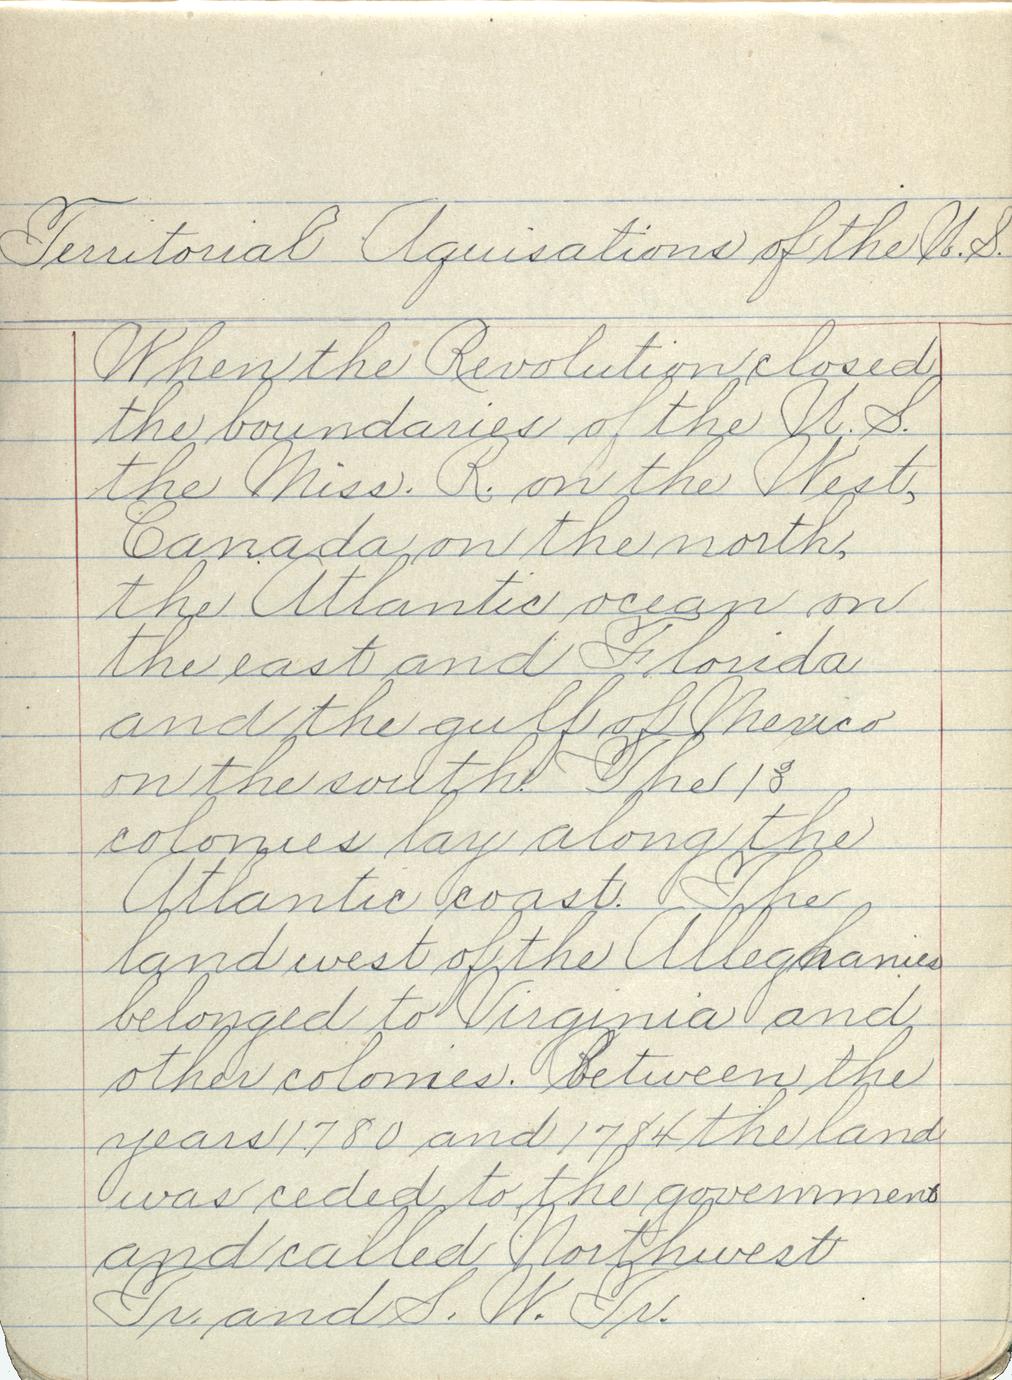 Territorial Aquisations of the U.S.
When the Revolution closed
the boundaries of the U.S.
the Miss. R. on the West,
Canada on the north,
the Atlantic ocean on
the east and Florida
and the gulf of Mexico
on the south. The 13
colonies lay along the
Atlantic coast. The
land west of the Alleghanies
belonged to Virginia and
other colonies. Between the
years 1780 and 1784 the land
was ceded to the government
and called Northwest
Tr. and S. W. Tr.